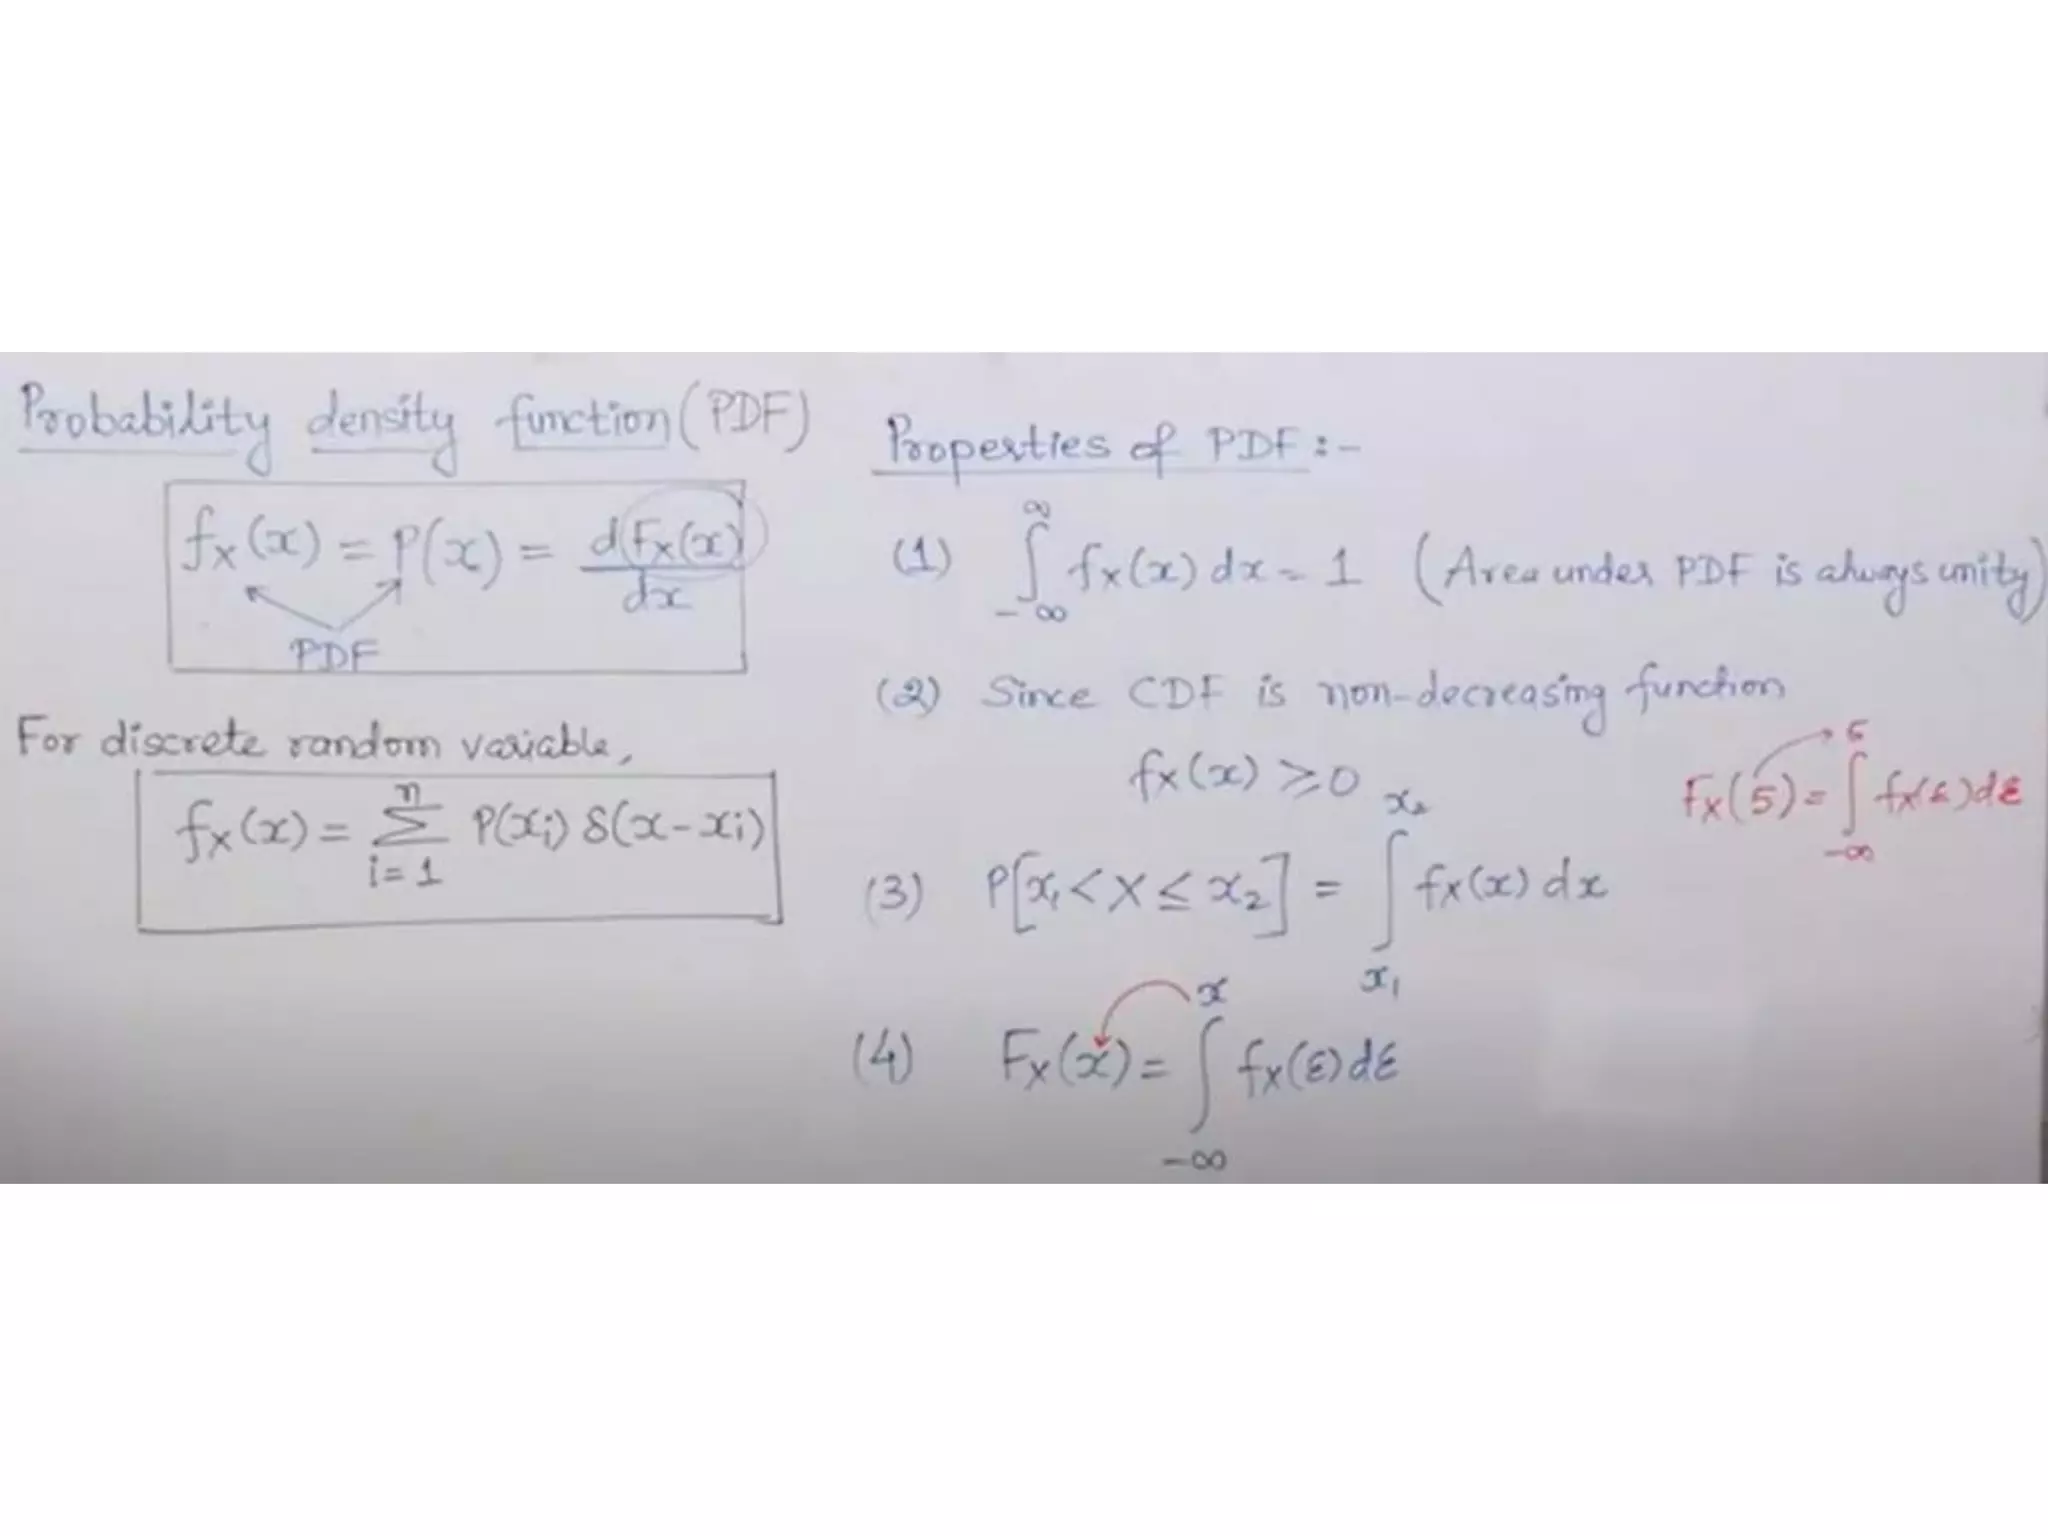 Probability density function (PDF)
fx(x) = P(x) = d Fx(x) / dx
PDF
For discrete random variable,
fx(x) = Σ_{i=1}^{n} P(xi) δ(x-xi)
Properties of PDF :-
(1) ∫_{-∞}^{∞} fx(x) dx = 1 (Area under PDF is always unity)
(2) Since CDF is non-decreasing function
fx(x) ≥ 0
Fx(5) = ∫_{-∞}^{5} fx(ε)dε
(3) P[x1 < X ≤ x2] = ∫_{x1}^{x2} fx(x) dx
(4) Fx(x) = ∫_{-∞}^{x} fx(ε)dε